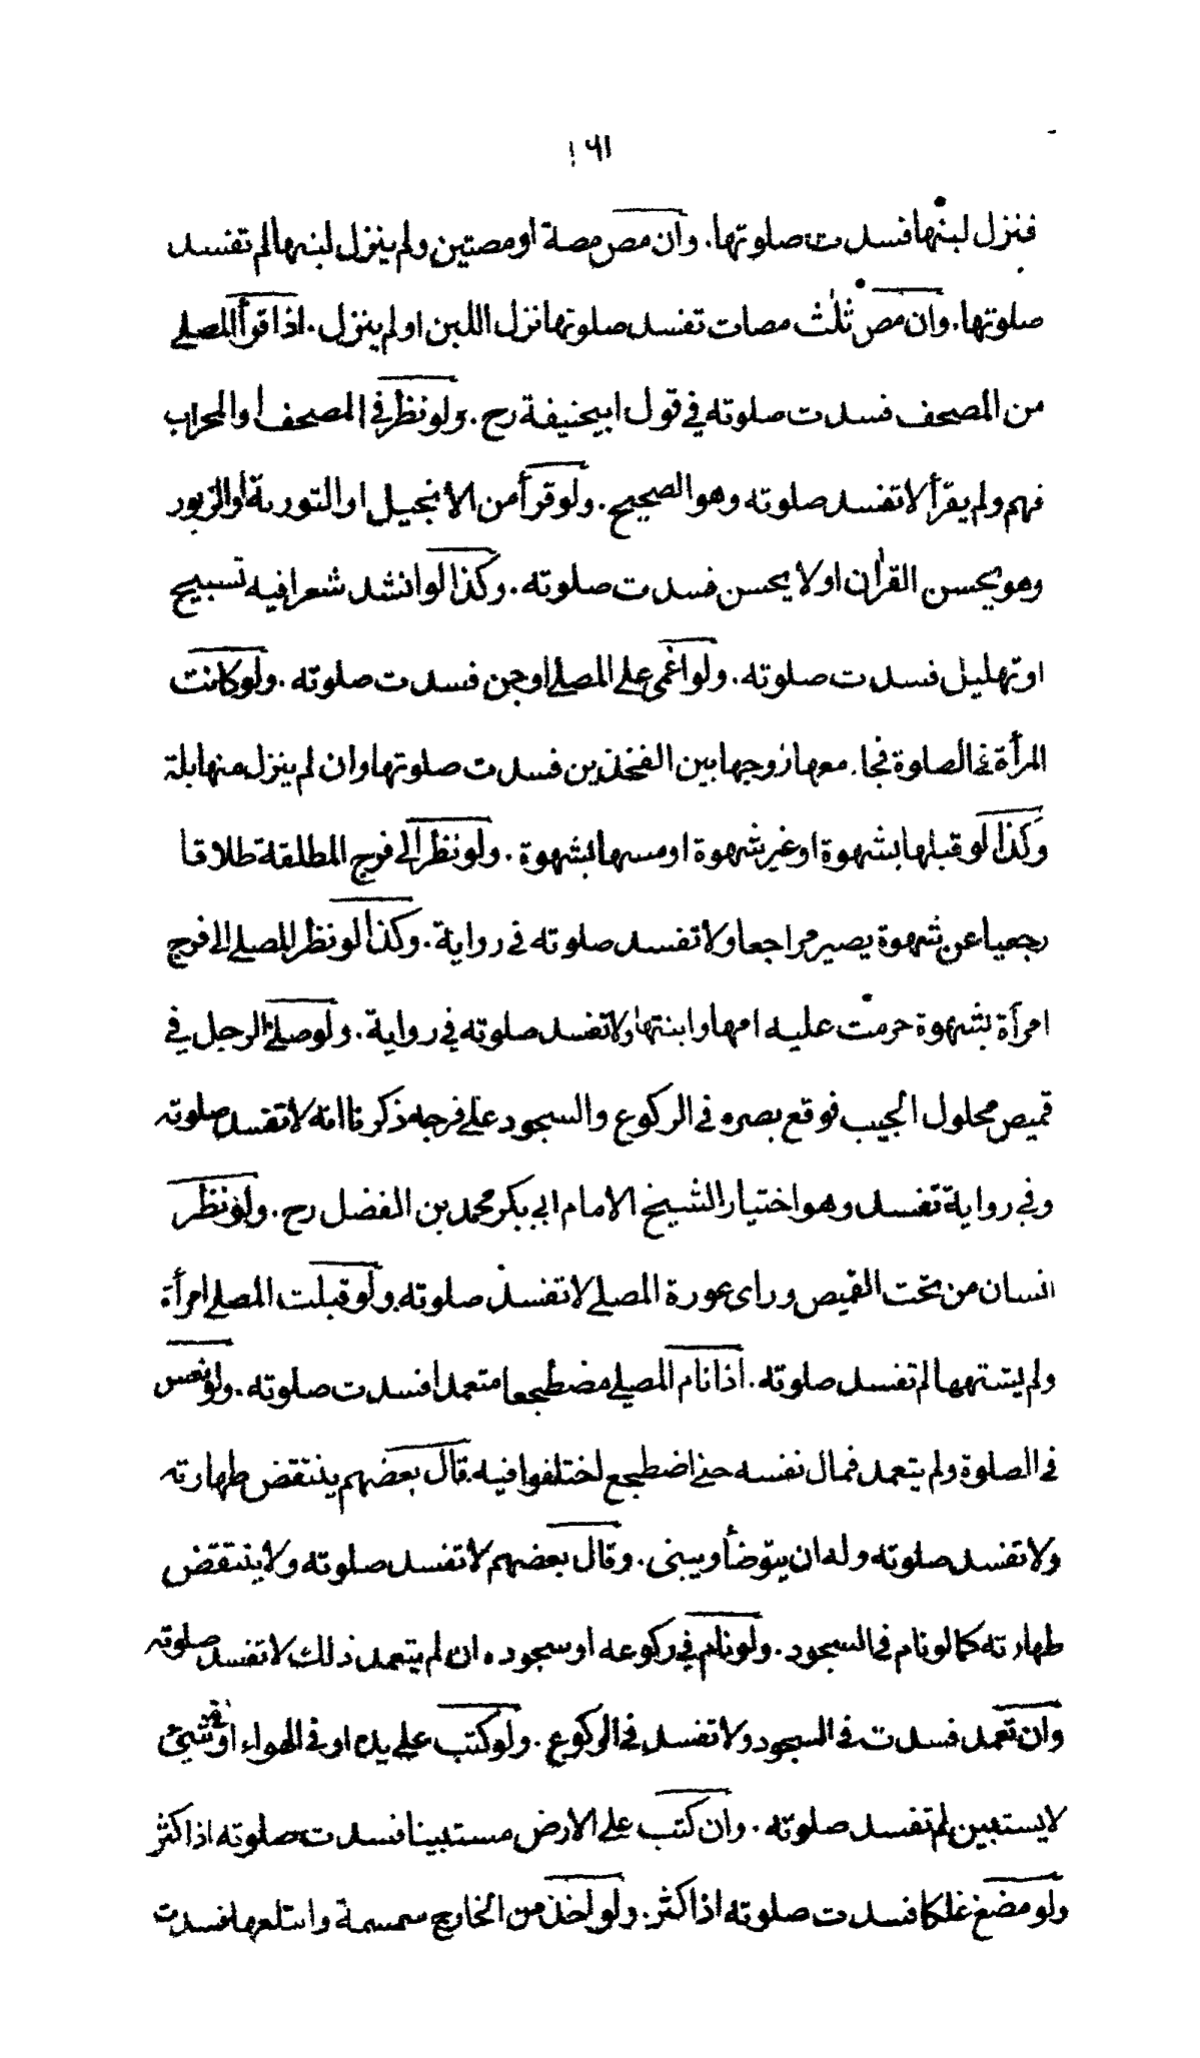 ١٦١
فنزل لبنها فسدت صلوتها. وان مص مصة او مصتين ولم ينزل لبنها لم تفسد
صلوتها. وان مص ثلث مصات تفسد صلوتها نزل اللبن او لم ينزل. اذا قرأ المصلي
من المصحف فسدت صلوته في قول ابيحنيفة رح. ولو نظر في المصحف او المحراب
فهم ولم يقرأ لا تفسد صلوته وهو الصحيح. ولو قرأ من الانجيل او التورىة او الزبور
وهو يحسن القرآن او لا يحسن فسدت صلوته. وكذا لو انشد شعرا فيه تسبيح
او تهليل فسدت صلوته. ولو اغمى على المصلي او جن فسدت صلوته. ولو كانت
المرأة في الصلوة فجامعها زوجها بين الفخذين فسدت صلوتها وان لم ينزل منها بلة
وكذا لو قبلها بشهوة او غير شهوة او مسها بشهوة. ولو نظر الى فرج المطلقة طلاقا
رجعيا عن شهوة يصير مراجعا ولا تفسد صلوته في رواية. وكذا لو نظر المصلي الى فرج
امرأة بشهوة حرمت عليه امها وابنتها ولا تفسد صلوته في رواية. ولو صلى الرجل في
قميص محلول الجيب فوقع بصره في الركوع والسجود على فرجه ذكرنا انه لا تفسد صلوته
وفي رواية تفسد وهو اختيار الشيخ الامام ابي بكر محمد بن الفضل رح. ولو نظر
انسان من تحت القميص وراى عورة المصلي لا تفسد صلوته. ولو قبلت المصلي امرأة
ولم يشتهها لم تفسد صلوته. اذا نام المصلي مضطجعا متعمدا فسدت صلوته. ولو نعس
في الصلوة ولم يتعمد فمال نفسه حتى اضطجع اختلفوا فيه. قال بعضهم ينتقض طهارته
ولا تفسد صلوته وله ان يتوضأ ويبنى. وقال بعضهم لا تفسد صلوته ولا ينتقض
طهارته كما لو نام في السجود. ولو نام في ركوعه او سجوده ان لم يتعمد ذلك لا تفسد صلوته
وان تعمد فسدت في السجود ولا تفسد في الركوع. ولو كتب على يده او في الهواء او في شيئ
لا يستبين لم تفسد صلوته. وان كتب على الارض مستبينا فسدت صلوته اذا كثر
ولو مضغ علكا فسدت صلوته اذا كثر. ولو اخذ من الخارج سمسمة وابتلعها فسدت